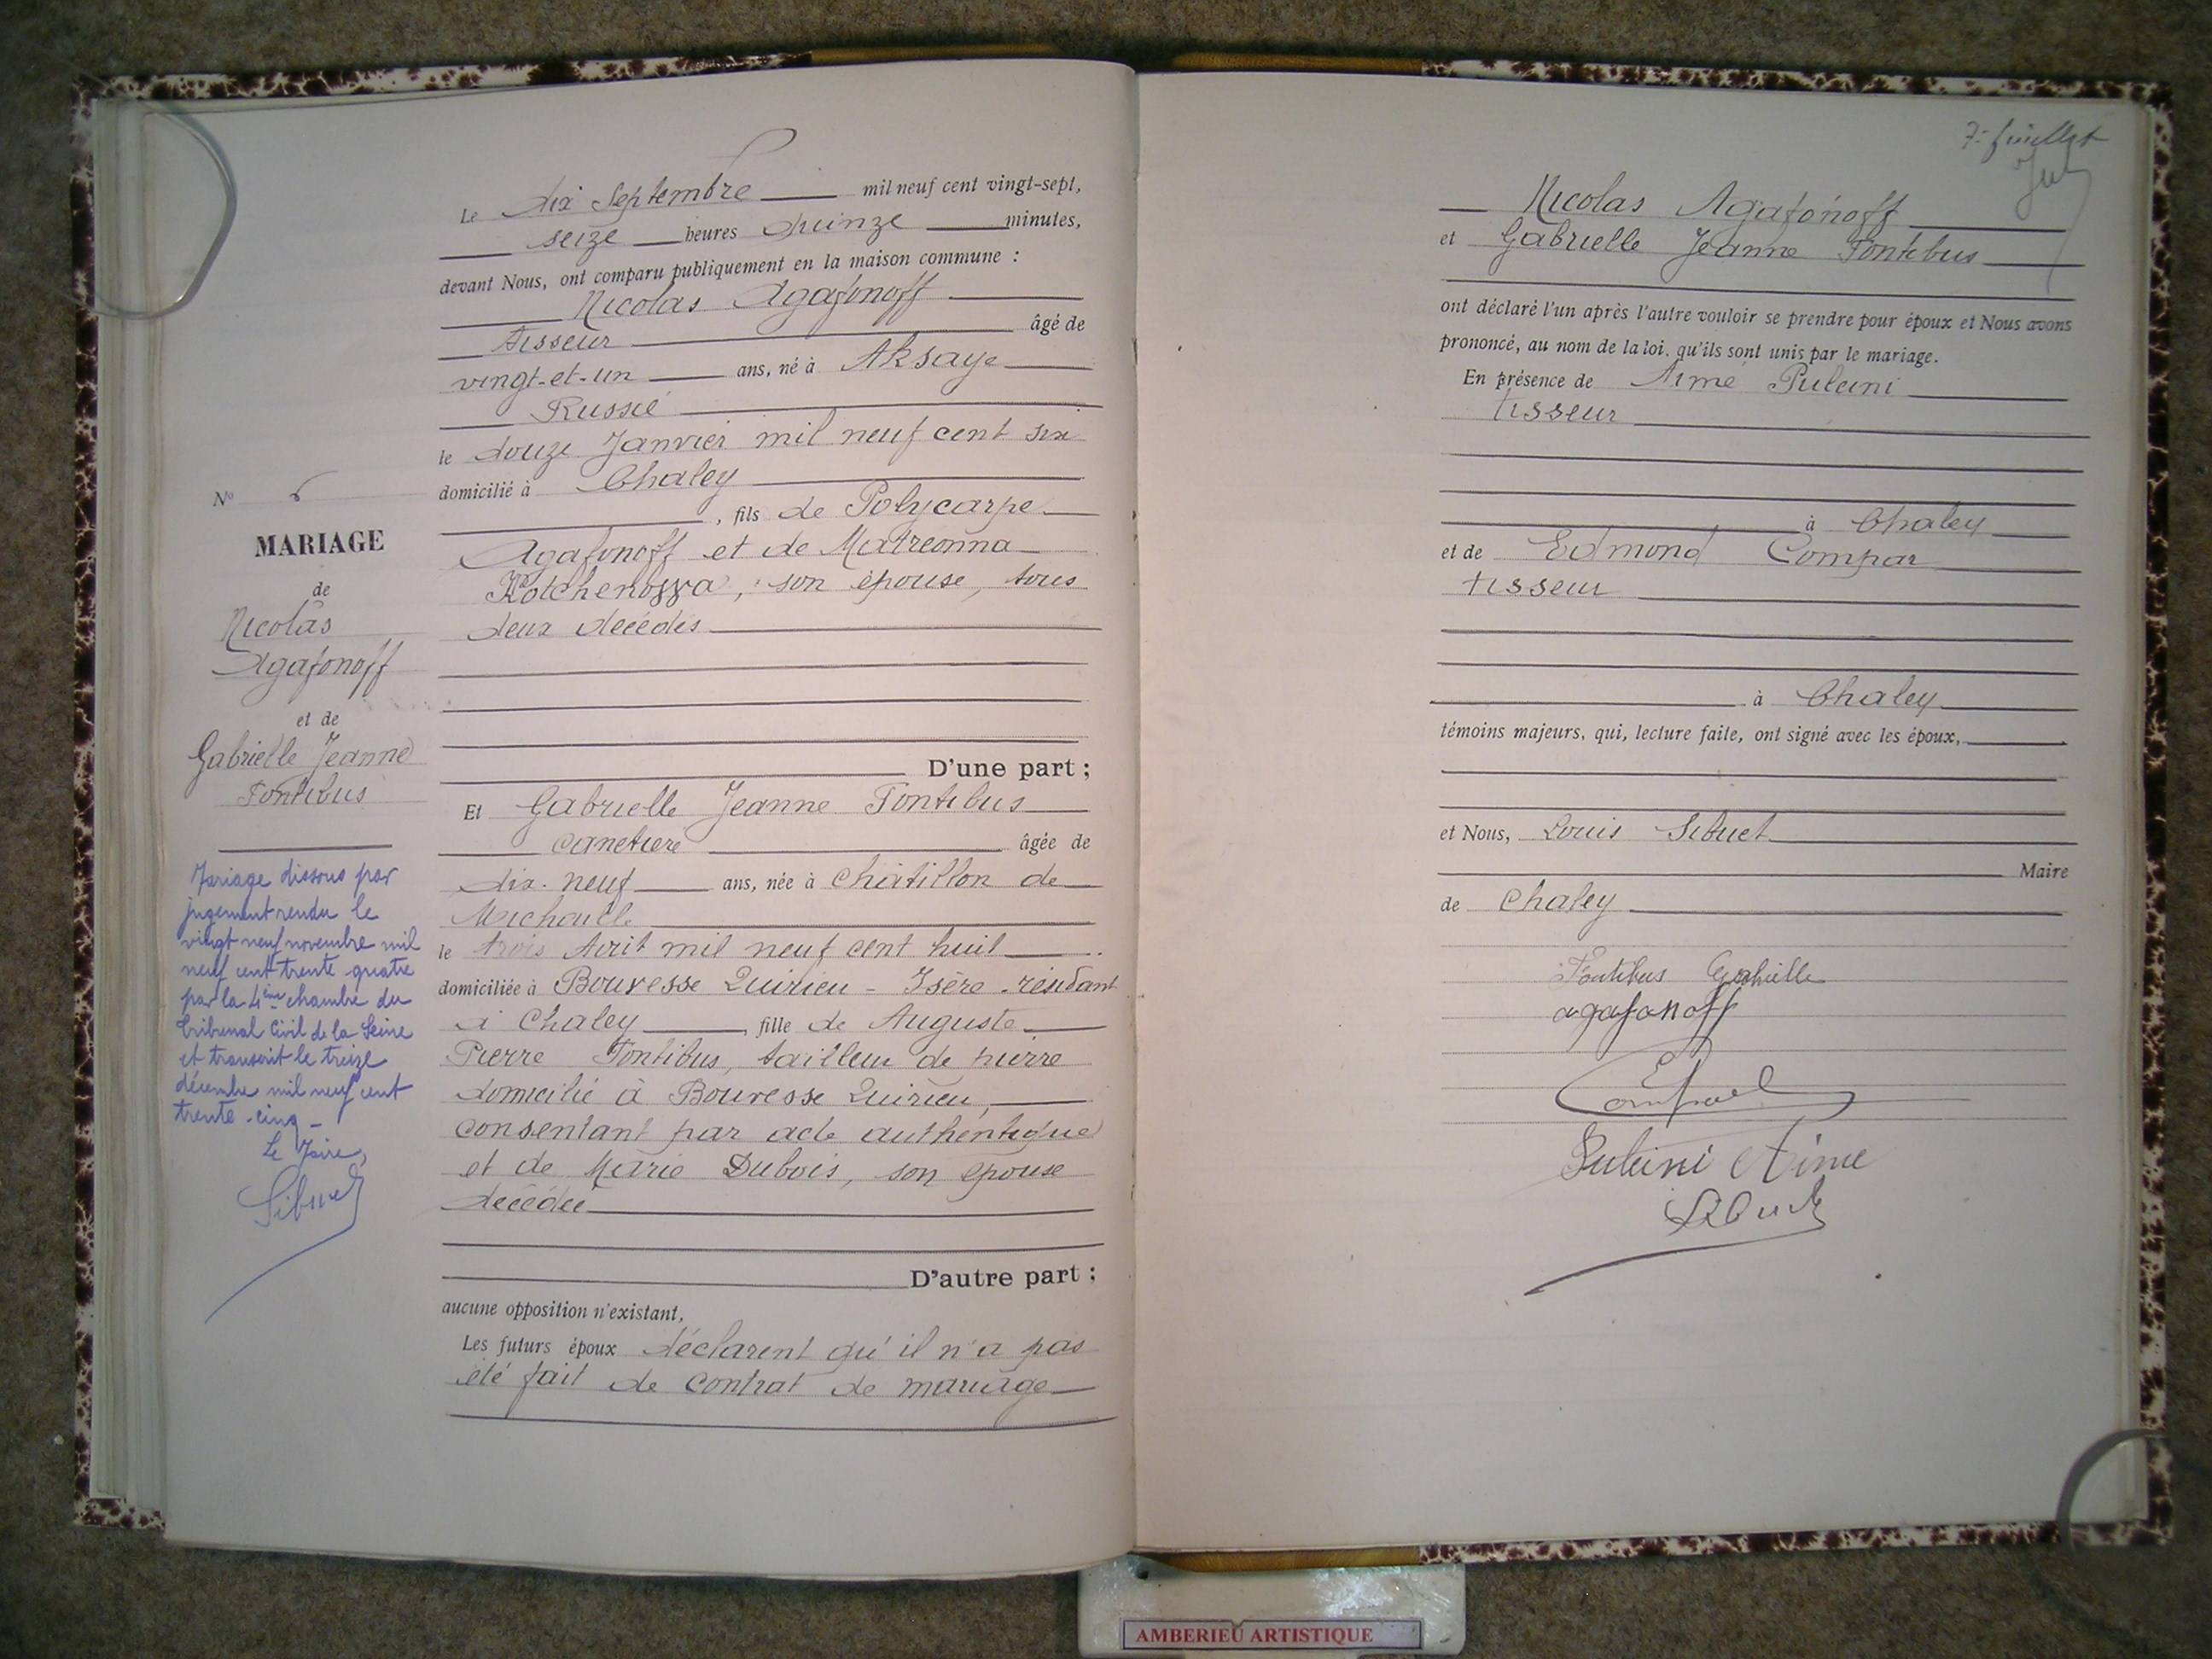 N° 6
MARIAGE
de
Nicolas
Agafonoff
et de
Gabrielle Jeanne
Fontibus
Mariage dissous par
jugement rendu le
vingt neuf novembre mil
neuf cent trente quatre
par la 4ème chambre du
tribunal Civil de la Seine
et transcrit le treize
décembre mil neuf cent
trente-cinq -
Le Maire,
Sibuet
Le dix Septembre mil neuf cent vingt-sept,
seize heures quinze minutes,
devant Nous, ont comparu publiquement en la maison commune :
Nicolas Agafonoff
tisseur âgé de
vingt-et-un ans, né à Aksaye
Russie
le douze Janvier mil neuf cent six
domicilié à Chaley
, fils de Polycarpe
Agafonoff et de Matreonna
, son épouse, tous
deux décédés
D'une part ;
Et Gabrielle Jeanne Fontibus
canetière âgée de
dix-neuf ans, née à Châtillon de
Michaille
le trois Avril mil neuf cent huit
domiciliée à Bouvesse Quirieu - Isère - résidant
à Chaley, fille de Auguste
Pierre Fontibus, tailleur de pierre
domicilié à Bouvesse Quirieu,
consentant par acte authentique
et de Marie Dubois, son épouse
décédée
D'autre part ;
aucune opposition n'existant,
Les futurs époux déclarent qu'il n'a pas
été fait de contrat de mariage
7e feuillet
Nicolas Agafonoff
et Gabrielle Jeanne Fontibus
ont déclaré l'un après l'autre vouloir se prendre pour époux et Nous avons
prononcé, au nom de la loi, qu'ils sont unis par le mariage.
En présence de Aimé Puleini
tisseur
à Chaley
et de Edmond Compar
tisseur
à Chaley
témoins majeurs, qui, lecture faite, ont signé avec les époux,
et Nous, Louis Sibuet
Maire
de Chaley
Fontibus Gabrielle
agafonoff
Puleini Aime
Sibuet
AMBERIEU ARTISTIQUE